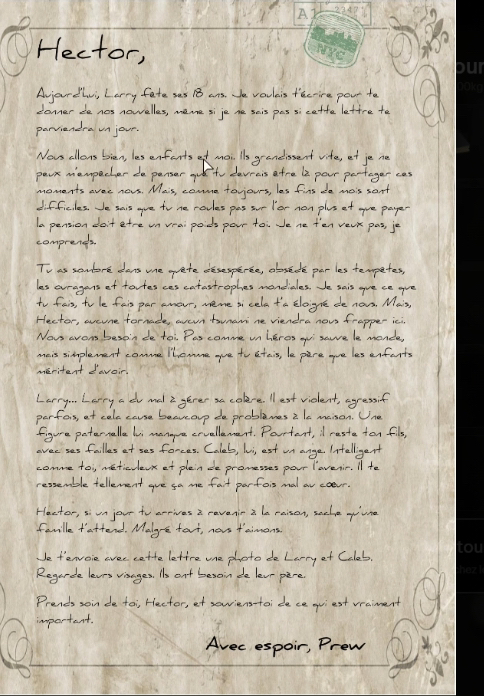 A1 23471
NYC
Hector,
Aujourd'hui, Larry fête ses 18 ans. Je voulais t'écrire pour te
donner de nos nouvelles, même si je ne sais pas si cette lettre te
parviendra un jour.
Nous allons bien, les enfants et moi. Ils grandissent vite, et je ne
peux m'empêcher de penser que tu devrais être là pour partager ces
moments avec nous. Mais, comme toujours, les fins de mois sont
difficiles. Je sais que tu ne roules pas sur l'or non plus et que payer
la pension doit être un vrai poids pour toi. Je ne t'en veux pas, je
comprends.
Tu as sombré dans une quête désespérée, obsédé par les tempêtes,
les ouragans et toutes ces catastrophes mondiales. Je sais que ce que
tu fais, tu le fais par amour, même si cela t'a éloigné de nous. Mais,
Hector, aucune tornade, aucun tsunami ne viendra nous frapper ici.
Nous avons besoin de toi. Pas comme un héros qui sauve le monde,
mais simplement comme l'homme que tu étais, le père que les enfants
méritent d'avoir.
Larry... Larry a du mal à gérer sa colère. Il est violent, agressif
parfois, et cela cause beaucoup de problèmes à la maison. Une
figure paternelle lui manque cruellement. Pourtant, il reste ton fils,
avec ses failles et ses forces. Caleb, lui, est un ange. Intelligent
comme toi, méticuleux et plein de promesses pour l'avenir. Il te
ressemble tellement que ça me fait parfois mal au cœur.
Hector, si un jour tu arrives à revenir à la raison, sache qu'une
famille t'attend. Malgré tout, nous t'aimons.
Je t'envoie avec cette lettre une photo de Larry et Caleb.
Regarde leurs visages. Ils ont besoin de leur père.
Prends soin de toi, Hector, et souviens-toi de ce qui est vraiment
important.
Avec espoir, Prew